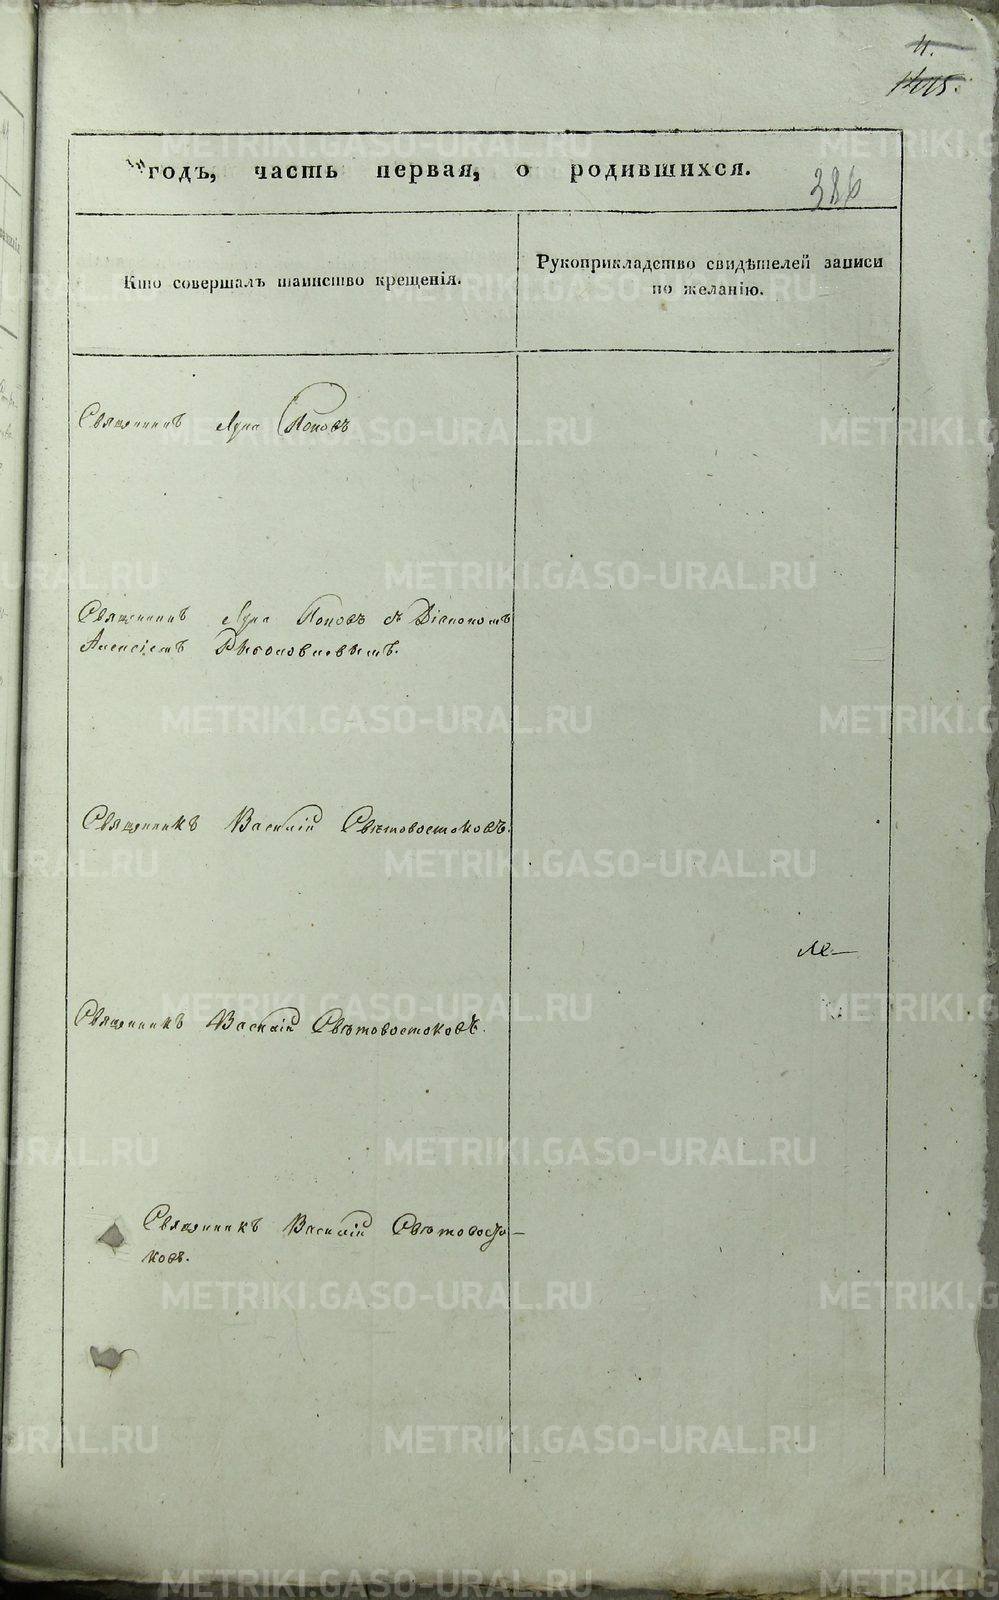 4.
годъ, часть первая, о родившихся.
386
Кто совершалъ таинство крещенія.
Рукоприкладство свидѣтелей записи
по желанію.
Священникъ Лука Поповъ
Священникъ Лука Поповъ съ Діакономъ
Алексіемъ
Священникъ Василій Свѣтовостоковъ.
Священникъ Василій Свѣтовостоковъ.
Священникъ Василій Свѣтовосто-
ковъ.
METRIKI.GASO-URAL.RU